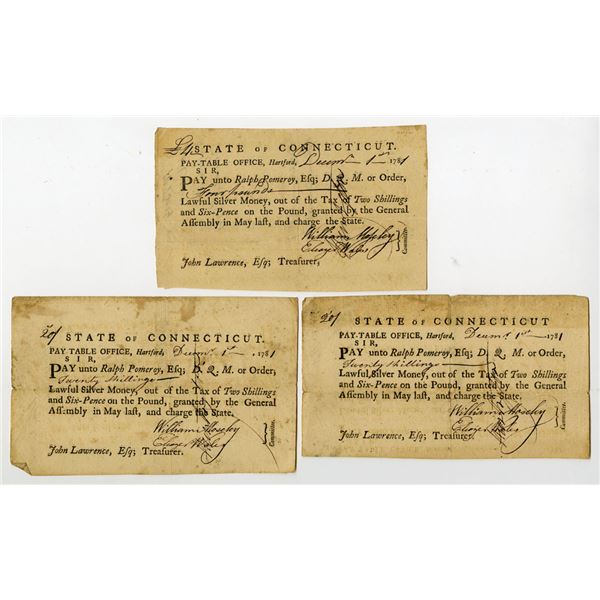 £4 STATE OF CONNECTICUT.
PAY-TABLE OFFICE, Hartford, Decemr 1st 1781
SIR,
PAY unto Ralph Pomeroy, Esq; D. Q. M. or Order,
Four pounds
Lawful Silver Money, out of the Tax of Two Shillings
and Six-Pence on the Pound, granted by the General
Assembly in May last, and charge the State.
William Moseley
Eleazr Wales
Committee.
John Lawrence, Esq; Treasurer,
20/ STATE OF CONNECTICUT.
PAY-TABLE OFFICE, Hartford, Decemr 1st 1781
SIR,
PAY unto Ralph Pomeroy, Esq; D. Q. M. or Order,
Twenty Shillings
Lawful Silver Money, out of the Tax of Two Shillings
and Six-Pence on the Pound, granted by the General
Assembly in May last, and charge the State.
William Moseley
Eleazr Wales
Committee.
John Lawrence, Esq; Treasurer.
20/ STATE OF CONNECTICUT
PAY-TABLE OFFICE, Hartford, Decemr 1st 1781
SIR,
PAY unto Ralph Pomeroy, Esq; D. Q. M. or Order,
Twenty Shillings
Lawful Silver Money, out of the Tax of Two Shillings
and Six-Pence on the Pound, granted by the General
Assembly in May last, and charge the State.
William Moseley
Eleazr Wales
Committee.
John Lawrence, Esq; Treasurer.